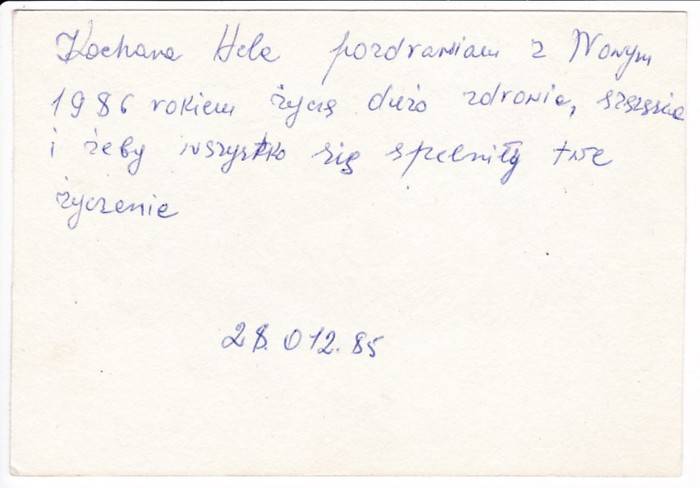 Kochana Hela pozdrawiam z Nowym
1986 rokiem życzę dużo zdrowia, szczęścia
i żeby wszystko się spełniły twe
życzenie
28.012.85